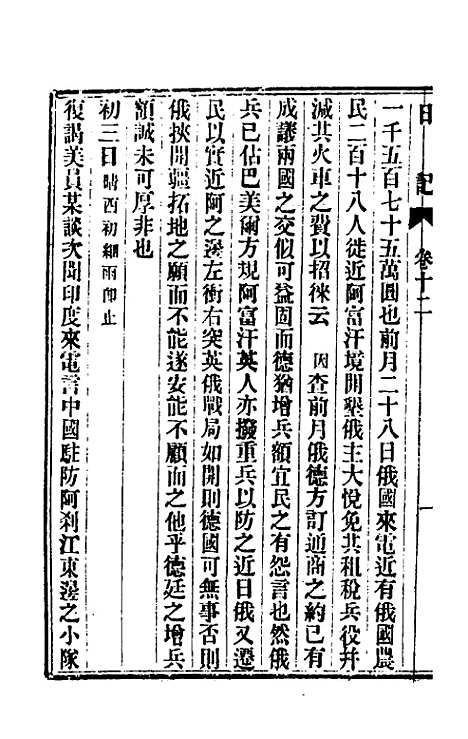 日記 卷十二
一千五百七十五萬圓也前月二十八日俄國來電近有俄國農
民二百十八人徙近阿富汗境開墾俄主大悅免其租稅兵役并
減其火車之費以招徠云因查前月俄德方訂通商之約已有
成議兩國之交似可益固而德猶增兵額宜民之有怨言也然俄
兵已佔巴美爾方規阿富汗英人亦撥重兵以防之近日俄又遷
民以實近阿之邊左衝右突英俄戰局如開則德國可無事否則
俄挾開疆拓地之願而不能遂安能不顧而之他乎德廷之增兵
額誠未可厚非也
初三日晴酉初細雨卽止
復謁美員某談次聞印度來電言中國駐防阿剎江東邊之小隊